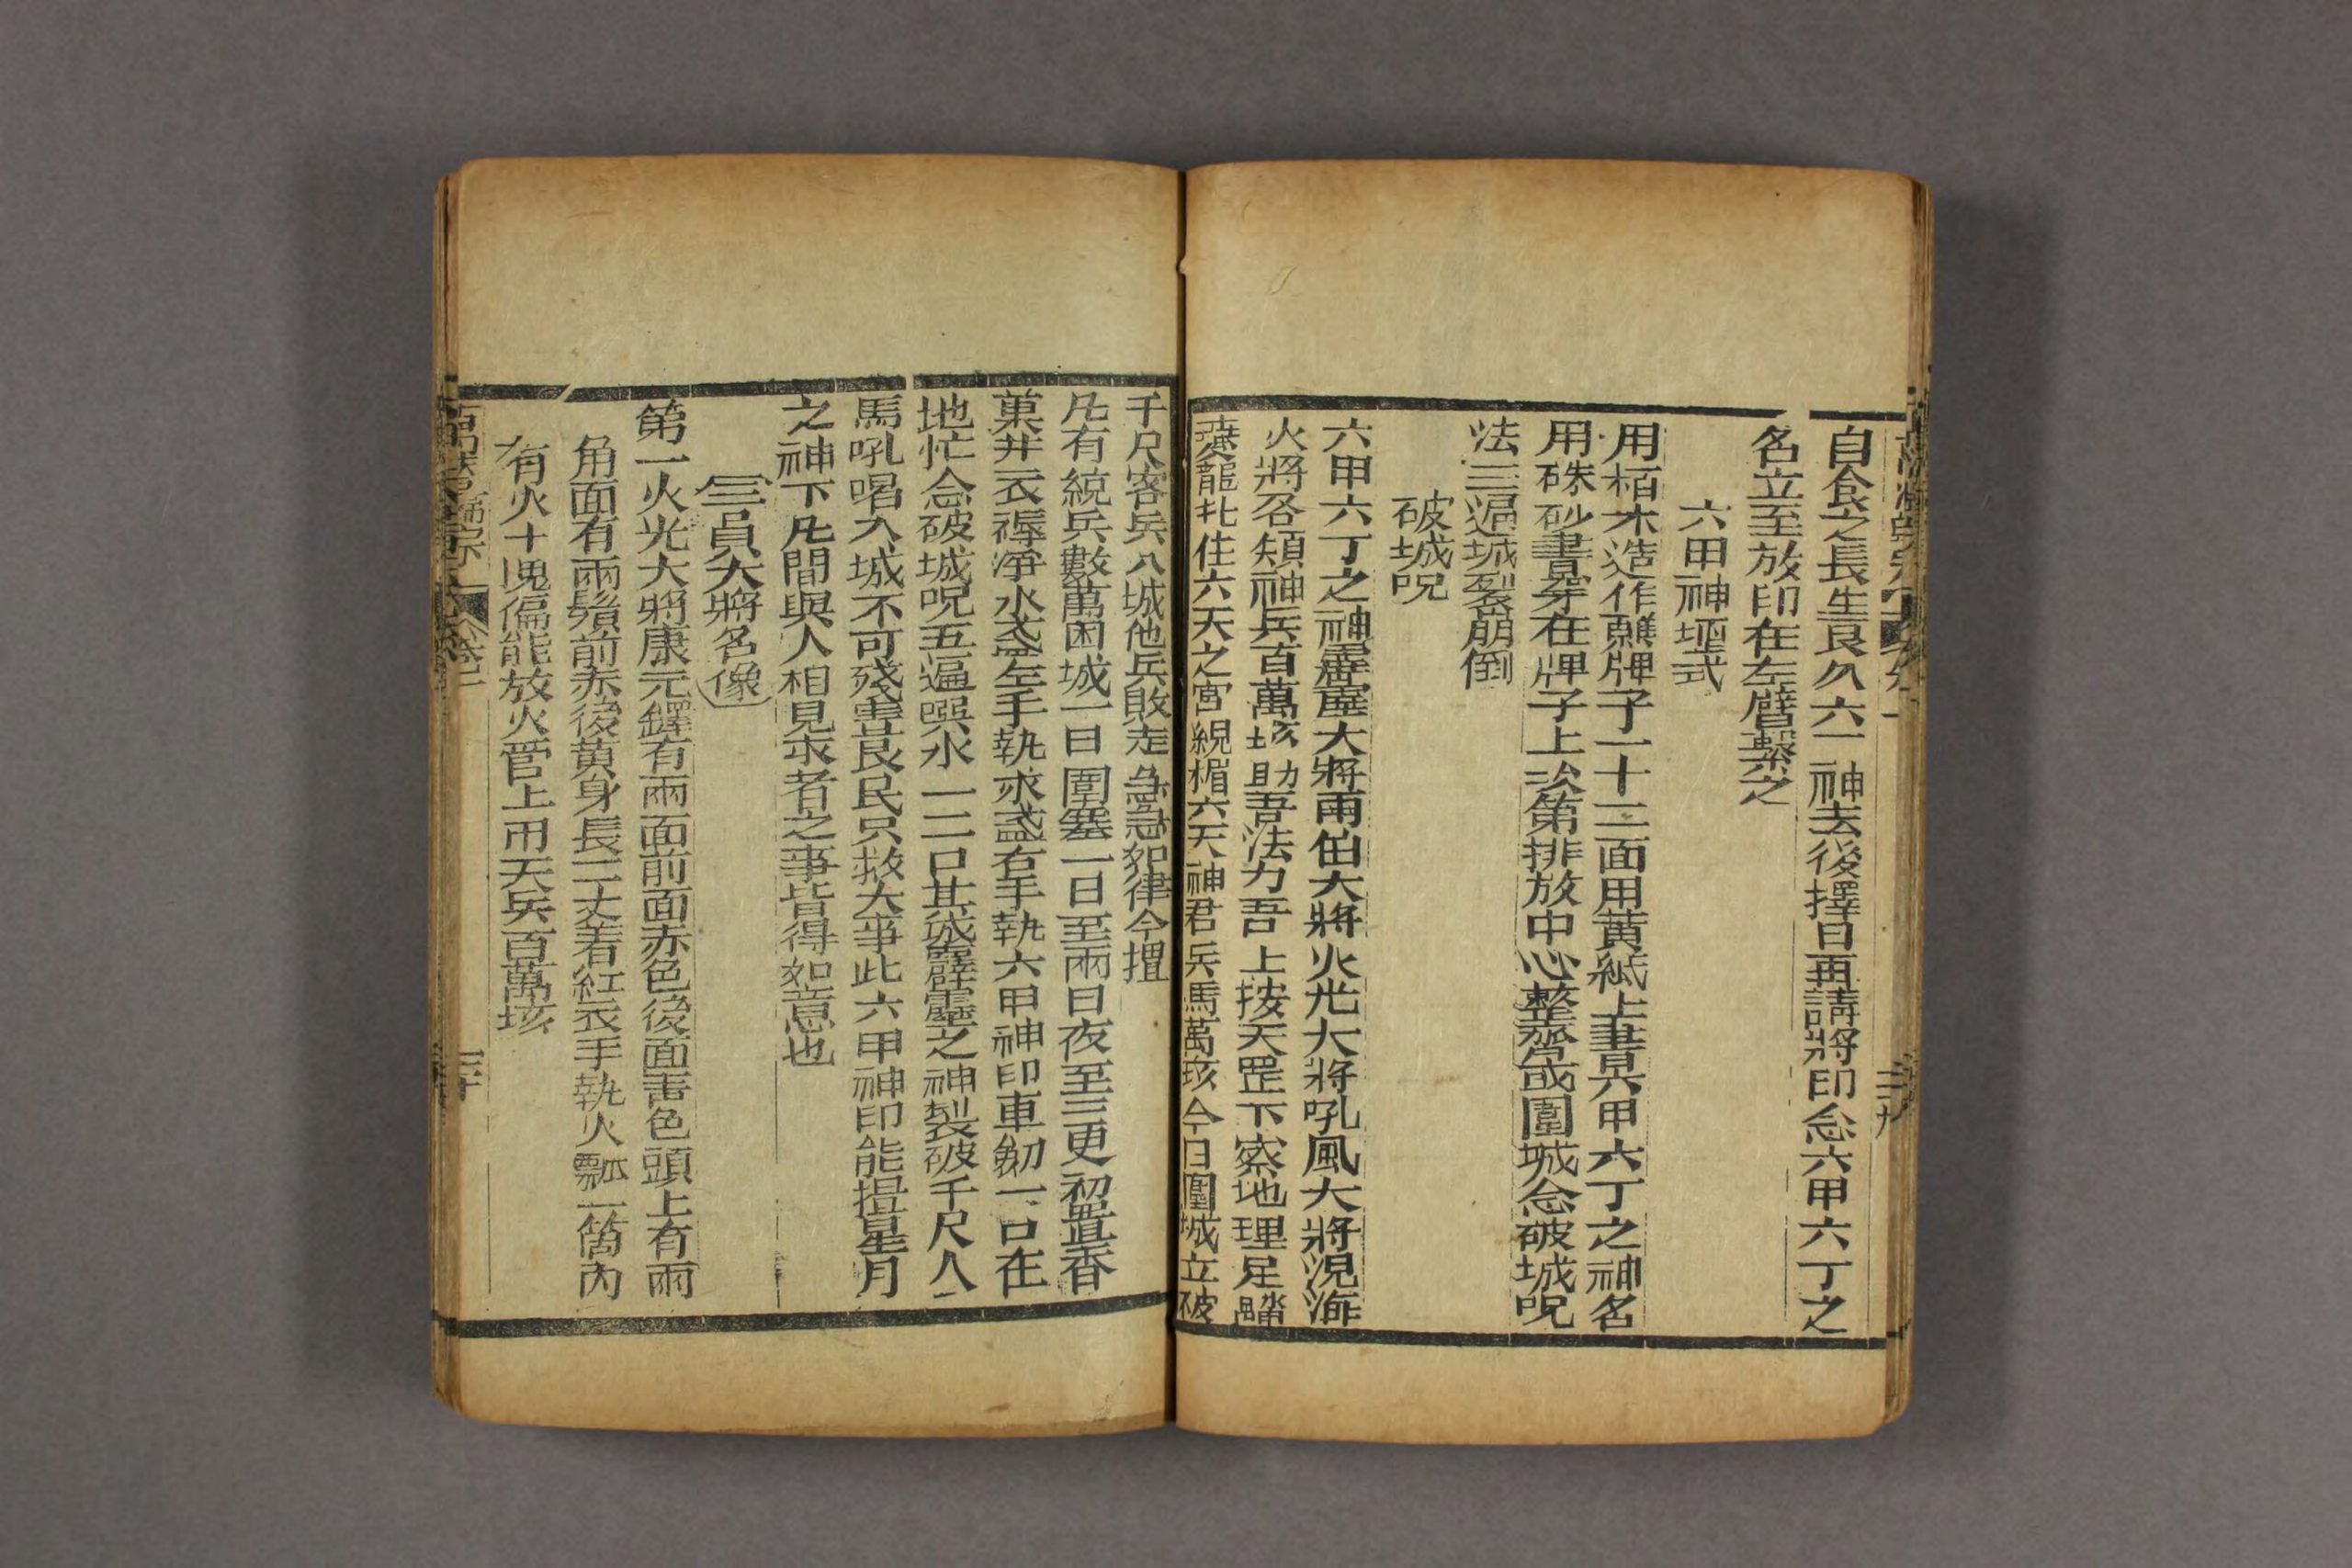 自食之長生良久六一神去後擇日再請將印念六甲六丁之
名立至放印在左臂繫之
六甲神壇式
用栢木造作牌子一十二面用黄紙上書六甲六丁之神名
用硃砂書穿在牌子上次第排放中心整齊或圍城念破城呪
法三遍城裂崩倒
破城呪
六甲六丁之神霹靂大將雨伯大將火光大將吼風大將混海
火將各領神兵百萬垓助吾法力吾上按天罡下察地理足踏
龍扎住六天之宮統楣六天神君兵馬萬垓今日圍城立破
千尺客兵入城他兵敗走急急如律令攝
凡有統兵數萬困城一日圍塞一日至兩日夜至三更初置香
菓并衣褥淨水盞左手執水盞右手執六甲神印車劒一口在
地忙念破城呪五遍噀水一二口其城霹靂之神裂破千尺人
馬吼唱入城不可殘害良民只救大事此六甲神印能揖星月
之神下凡間與人相見求者之事皆得如意也
三員大將名像
第一火光大將康元鐸有兩面前面赤色後面青色頭上有兩
角面有兩鬚前赤後黄身長二丈着紅衣手執火瓢一箇內
有火十塊偏能放火管上用天兵百萬垓
三十